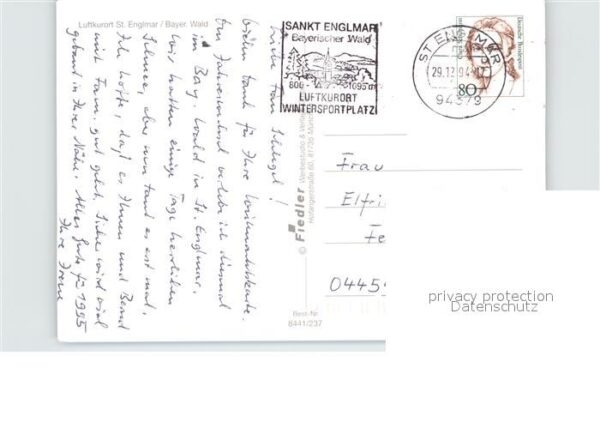 Luftkurort St. Englmar / Bayer. Wald
Liebe Frau Schlegel!
vielen Dank für Ihre Weihnachtskarte.
Den Jahreswechsel verlebe ich diesmal
im Bay. Wald in St. Englmar.
Wir hatten einige Tage herrlichen
Schnee, aber nun taut es erst mal.
Ich hoffe, daß es Ihnen und Bernd
mit Fam. gut geht. Sicher wird viel
gebaut in Ihrer Nähe. Alles Gute für 1995
Ihre Irene
© Fiedler Werbestudio & Verlag
81735
Best-Nr.
8441/237
SANKT ENGLMAR
Bayerischer Wald
800 - 1095 m
LUFTKURORT
WINTERSPORTPLATZ
ST ENGLMAR
29.12.94
94379
Deutsche Bundespost
80
Frau
Elfri
Fe
04454
privacy protection
Datenschutz